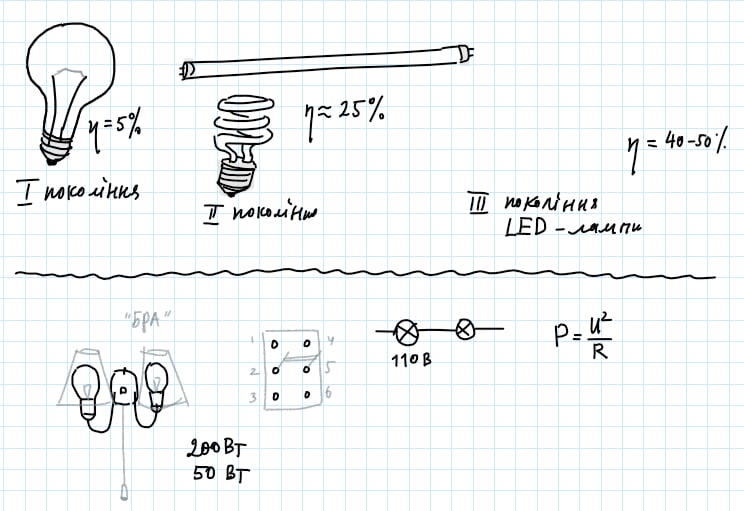 η = 5%
I покоління
η ≈ 25%
II покоління
η = 40-50%
III покоління
LED - лампи
"БРА"
1 4
2 5
3 6
200 Вт
50 Вт
110 В
P = U²/R